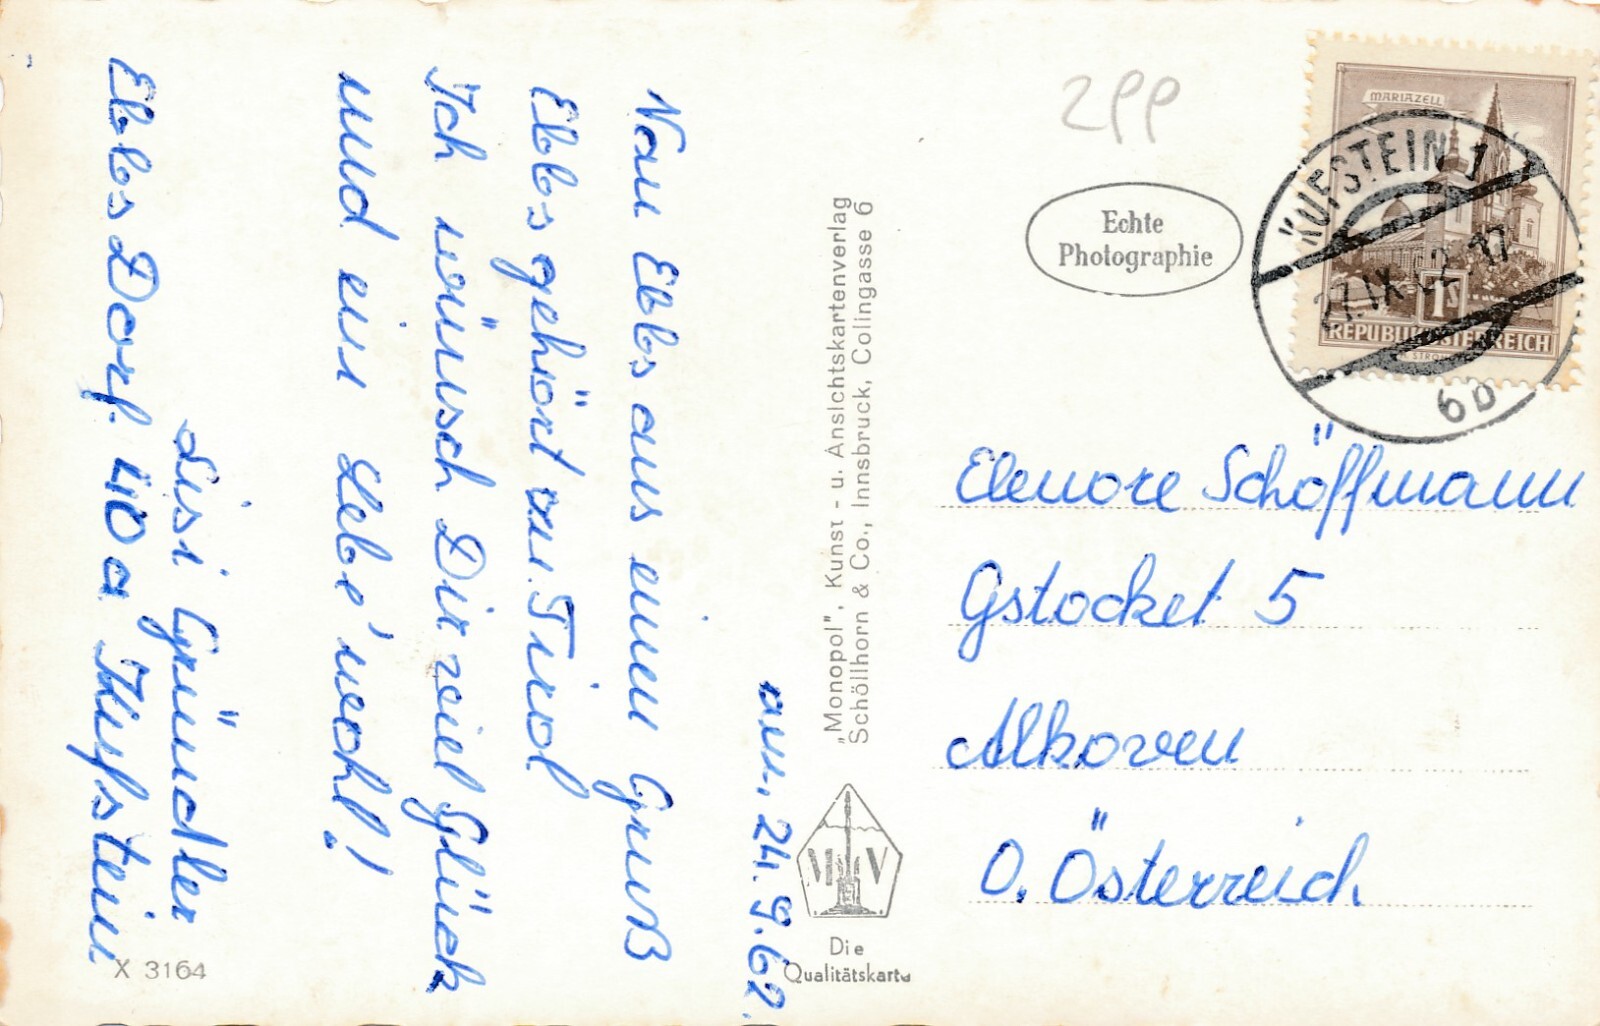 am, 24.9.62.
Von Ebbs einen Gruß
Ebbs gehört zu Tirol
Ich wünsch Dir viel Glück
und ein Lebe' wohl!
Lisi Gründler
Ebbs Dorf. 40a Kufstein
X 3164
"Monopol", Kunst- u. Ansichtskartenverlag
Schöllhorn & Co., Innsbruck, Colingasse 6
M V
Die
Qualitätskarte
299
Echte
Photographie
MARIAZELL
1S
REPUBLIK ÖSTERREICH
KUFSTEIN 1
27.IX.62.-17
6b
Elenore Schöffmann
Gstocket 5
Alkoven
O. Österreich.